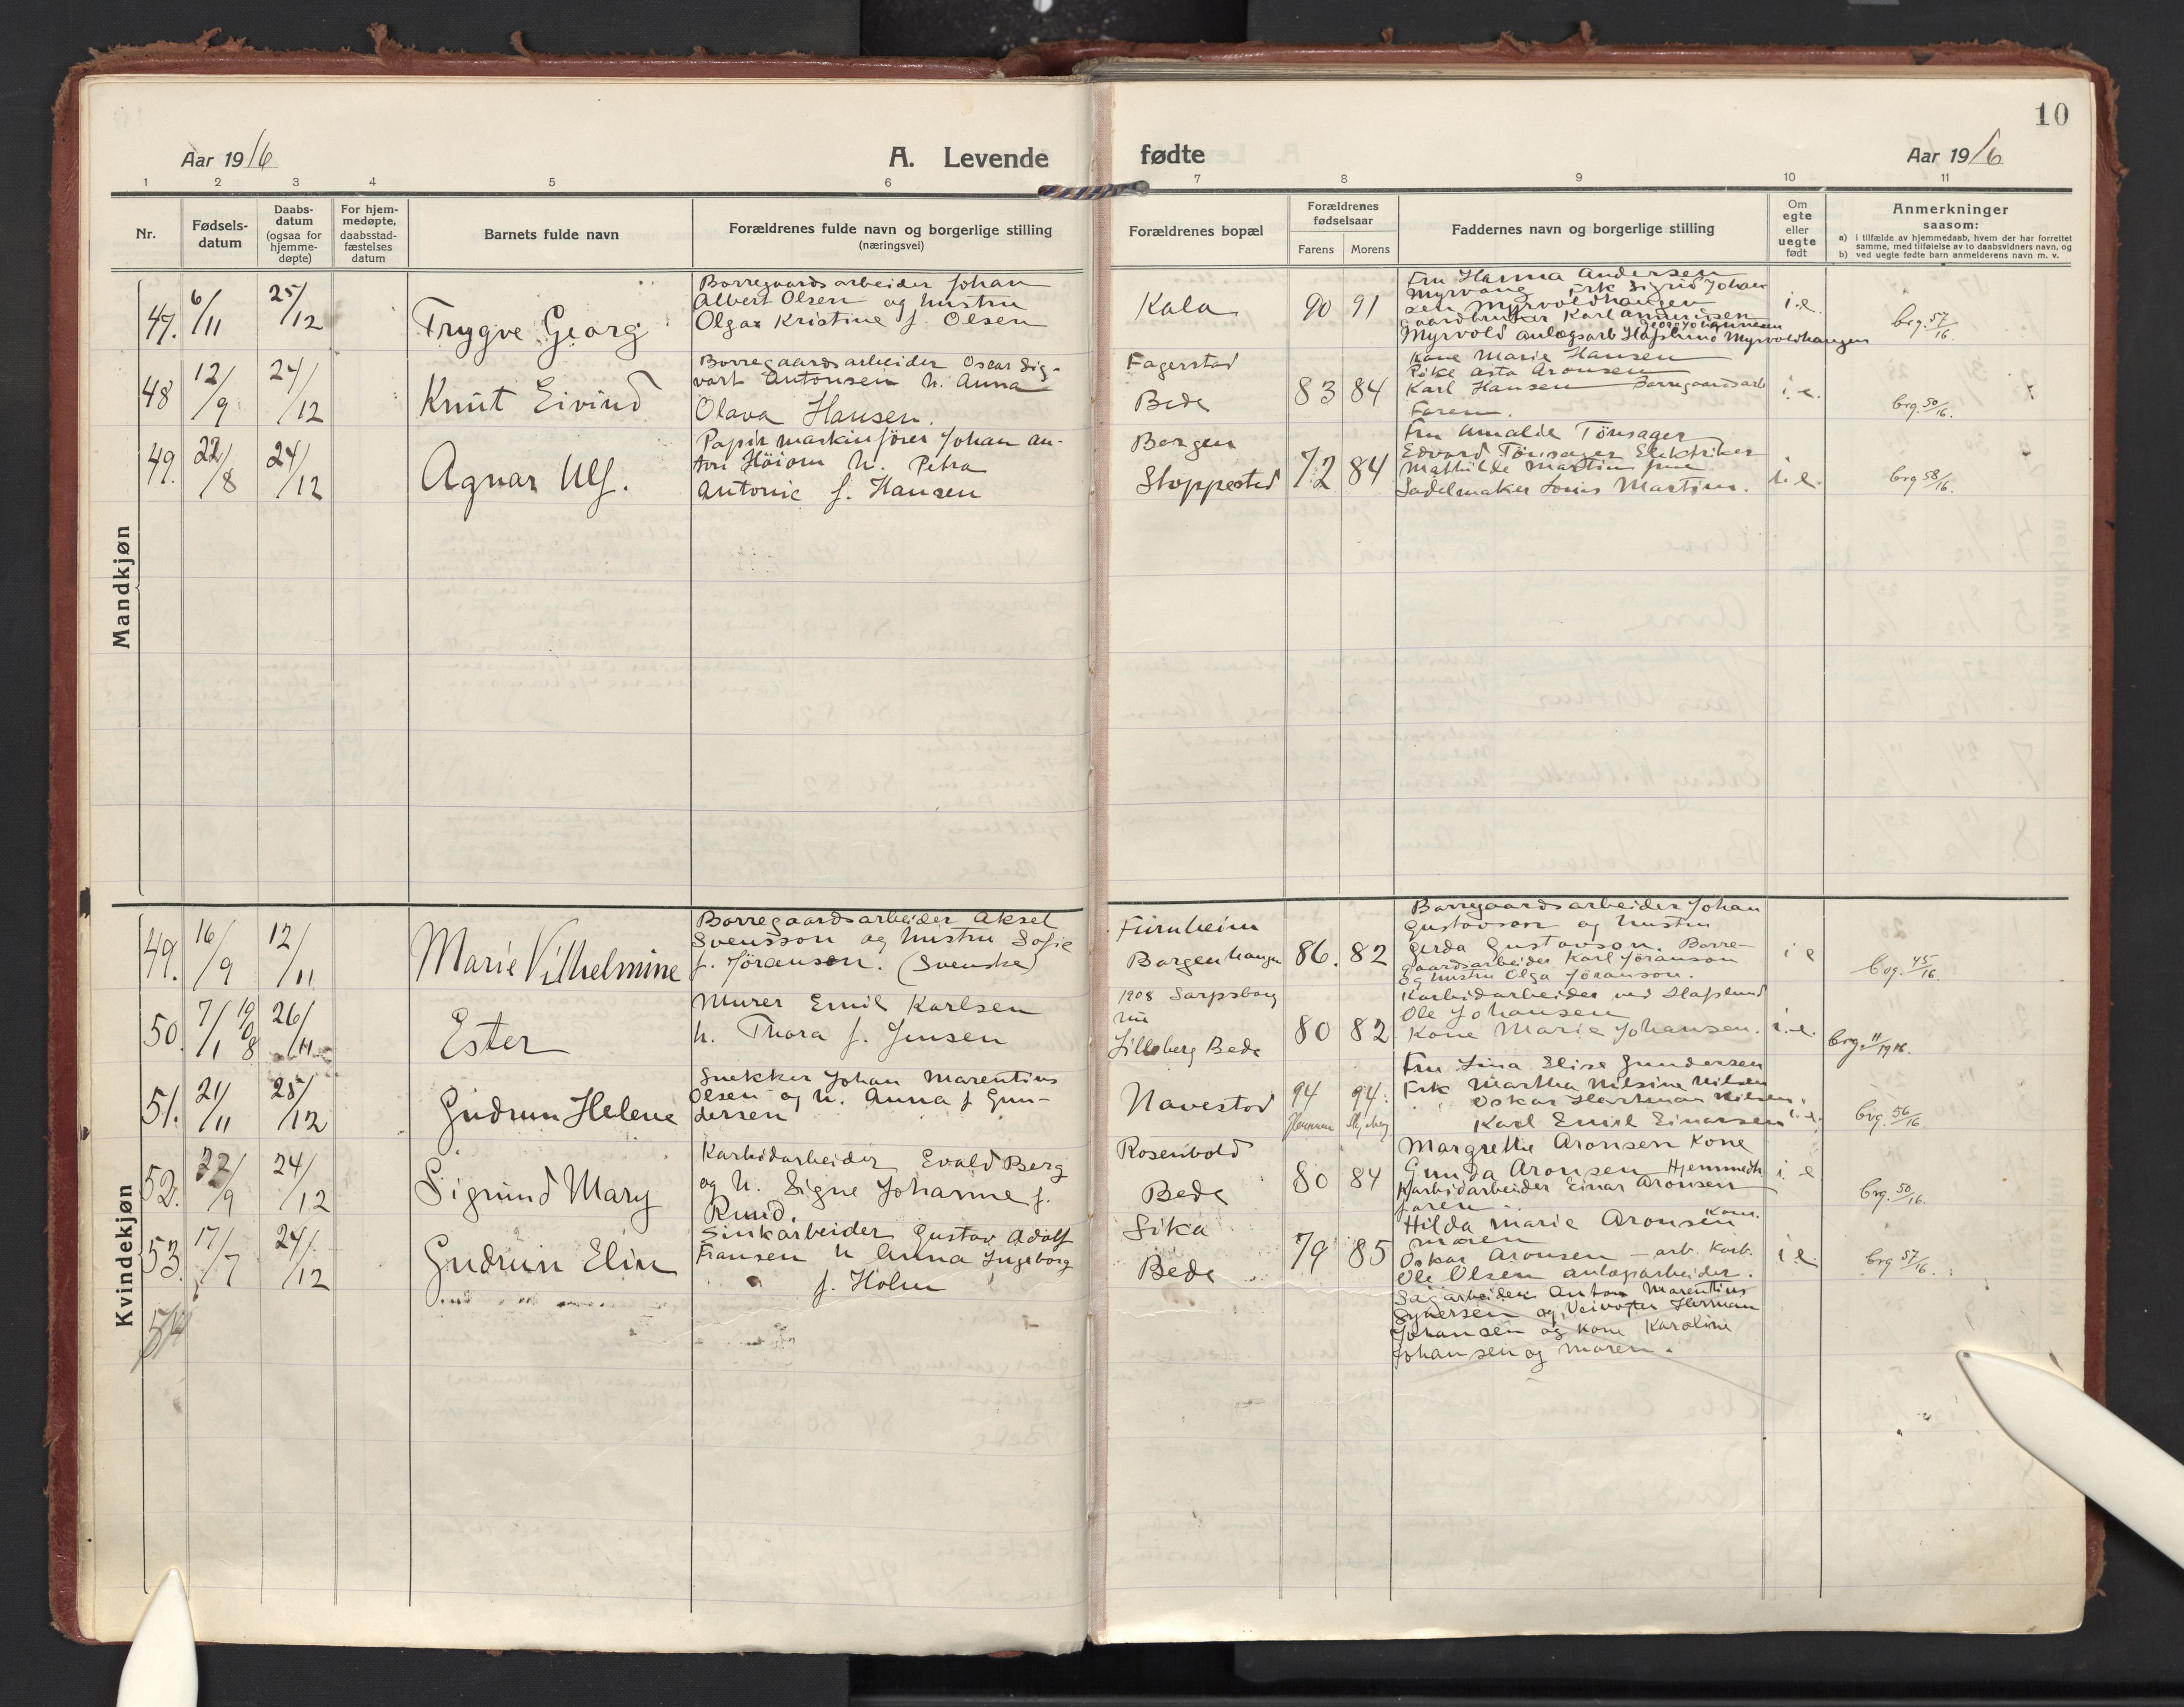 10
Aar 1916
A. Levende
fødte
Aar 1916
1 2 3 4 5 6 7 8 9 10 11
Nr.
Fødsels-
datum
Daabs-
datum
(ogsaa for
hjemme-
døpte)
For hjem-
medøpte,
daabsstad-
fæstelses
datum
Barnets fulde navn
Forældrenes fulde navn og borgerlige stilling
(næringsvei)
Forældrenes bopæl
Forældrenes
fødselsaar
Farens Morens
Faddernes navn og borgerlige stilling
Om
egte
eller
uegte
født
Anmerkninger
saasom:
a) i tilfælde av hjemmedaab, hvem der har forrettet
samme, med tilføielse av to daabsvidners navn, og
b) ved uegte fødte barn anmelderens navn m. v.
Mandkjøn
47. 6/11 25/12
Trygve Georg
Borregaardsarbeider Johan
Albert Olsen og hustru
Olga Kristine f. Olsen
Kala
90 91
Fru Hanna Andersen
Myrvang Frk Sigrid Johan
sen Myrvoldhaugen
Gaardbruker Karl Andersen
Georg Johannesen
Myrvold anlægsarb Hafslund Myrvoldhaugen
i.e.
brg. 57/16.
48 12/9 24/12
Knut Eivind
Borregaardsarbeider Oscar Sig-
vart Antonsen h. Anna
Olava Hansen.
Fagerstad
Bede
83 84
Kone Marie Hansen
Pike Asta Aronsen
Karl Hansen Borregaardsarb
Faren.
i.e.
brg. 50/16.
49. 22/8 24/12
Agnar Ulf.
Papirmaskinfører Johan An-
ton Höiom h. Petra
Antonie f. Hansen
Borgen
Stoppested
72 84
Fru Amalie Tönsager
Edvard Tönsager Elektriker
Mathilde Martins frue
Sadelmaker Louis Martins.
i.e.
brg 58/16.
Kvindekjøn
49. 16/9 12/11
Marie Vilhelmine
Borregaardsarbeider Aksel
Svensson og hustru Sofie
f. Jöranson. (Svenske)
Furuheim
Borgenhaugen
86. 82
Borregaardsarbeider Johan
Gustavson og hustru
Gerda Gustavson. Borre-
gaardsarbeider Karl Jöranson
og hustru Olga Jöranson.
i e
brg. 45/16.
50. 7/1 1908 26/11
Ester
Murer Emil Karlsen
h. Thora f. Jensen
1908 Sarpsborg
nu
Lilleberg Bede
80 82
Karbidarbeider ved Hafslund
Ole Johansen
Kone Marie Johansen.
i.e.
brg. 11/1916.
51. 21/11 25/12
Gudrun Helene
Snekker Johan Marentius
Olsen og h. Anna f Gun-
dersen
Navestad
94 94.
Skjeberg
Fru Lina Elise Gundersen
Frk Martha Nilsine Nilsen
Oskar Hartman Nilsen.
Karl Emil Einarsen
i.e.
brg. 56/16.
52. 22/9 24/12
Sigrund Mary
Karbidarbeider Evald Berg
og h. Signe Johanne f.
Ruud.
Rosenbold
Bede
80 84
Margrethe Aronsen Kone
Gunda Aronsen Hjemmedt
Karbidarbeider Einar Aronsen
faren
i e
brg. 50/16.
53. 17/7 24/12
Gudrun Elin
Sinkarbeider Gustav Adolf
Fransen h Anna Ingeborg
f. Holm
Lika
Bede
79 85
Hilda Marie Aronsen Kone.
moren
Oskar Aronsen – arb. karb.
Ole Olsen anlægsarbeider.
i e.
brg 57/16.
54
Sagarbeider Anton Marentius
Syversen og Veivogter Herman
Johansen og kone Karoline
Johansen og moren.